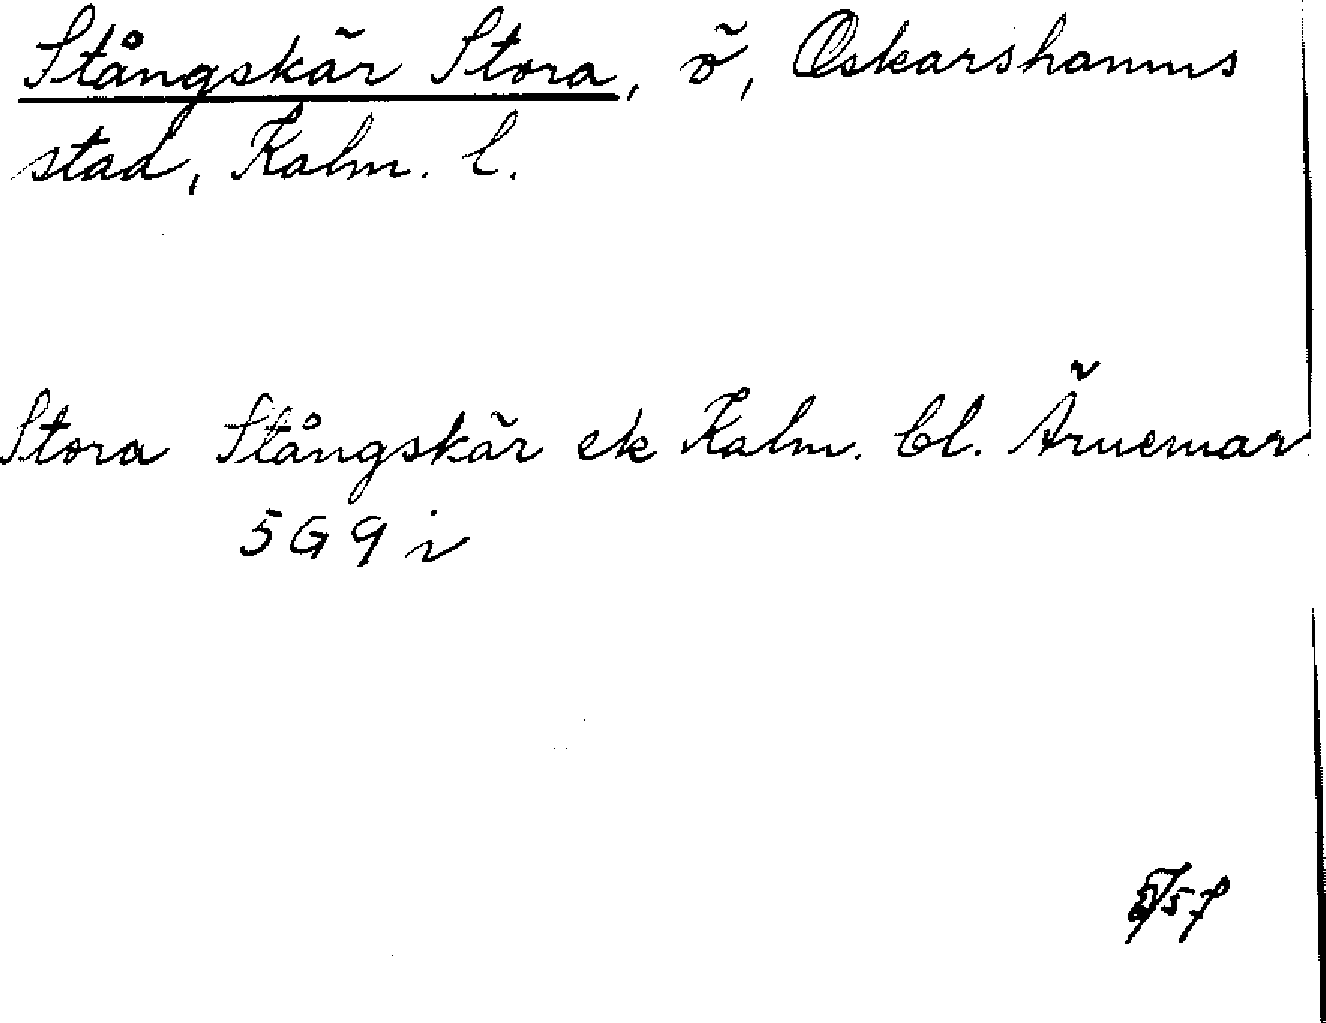 Stångskär Stora, ö, Oskarshamns
stad, Kalm. l.
Stora Stångskär ek Kalm. bl. Ärnemar
5 G 9 i